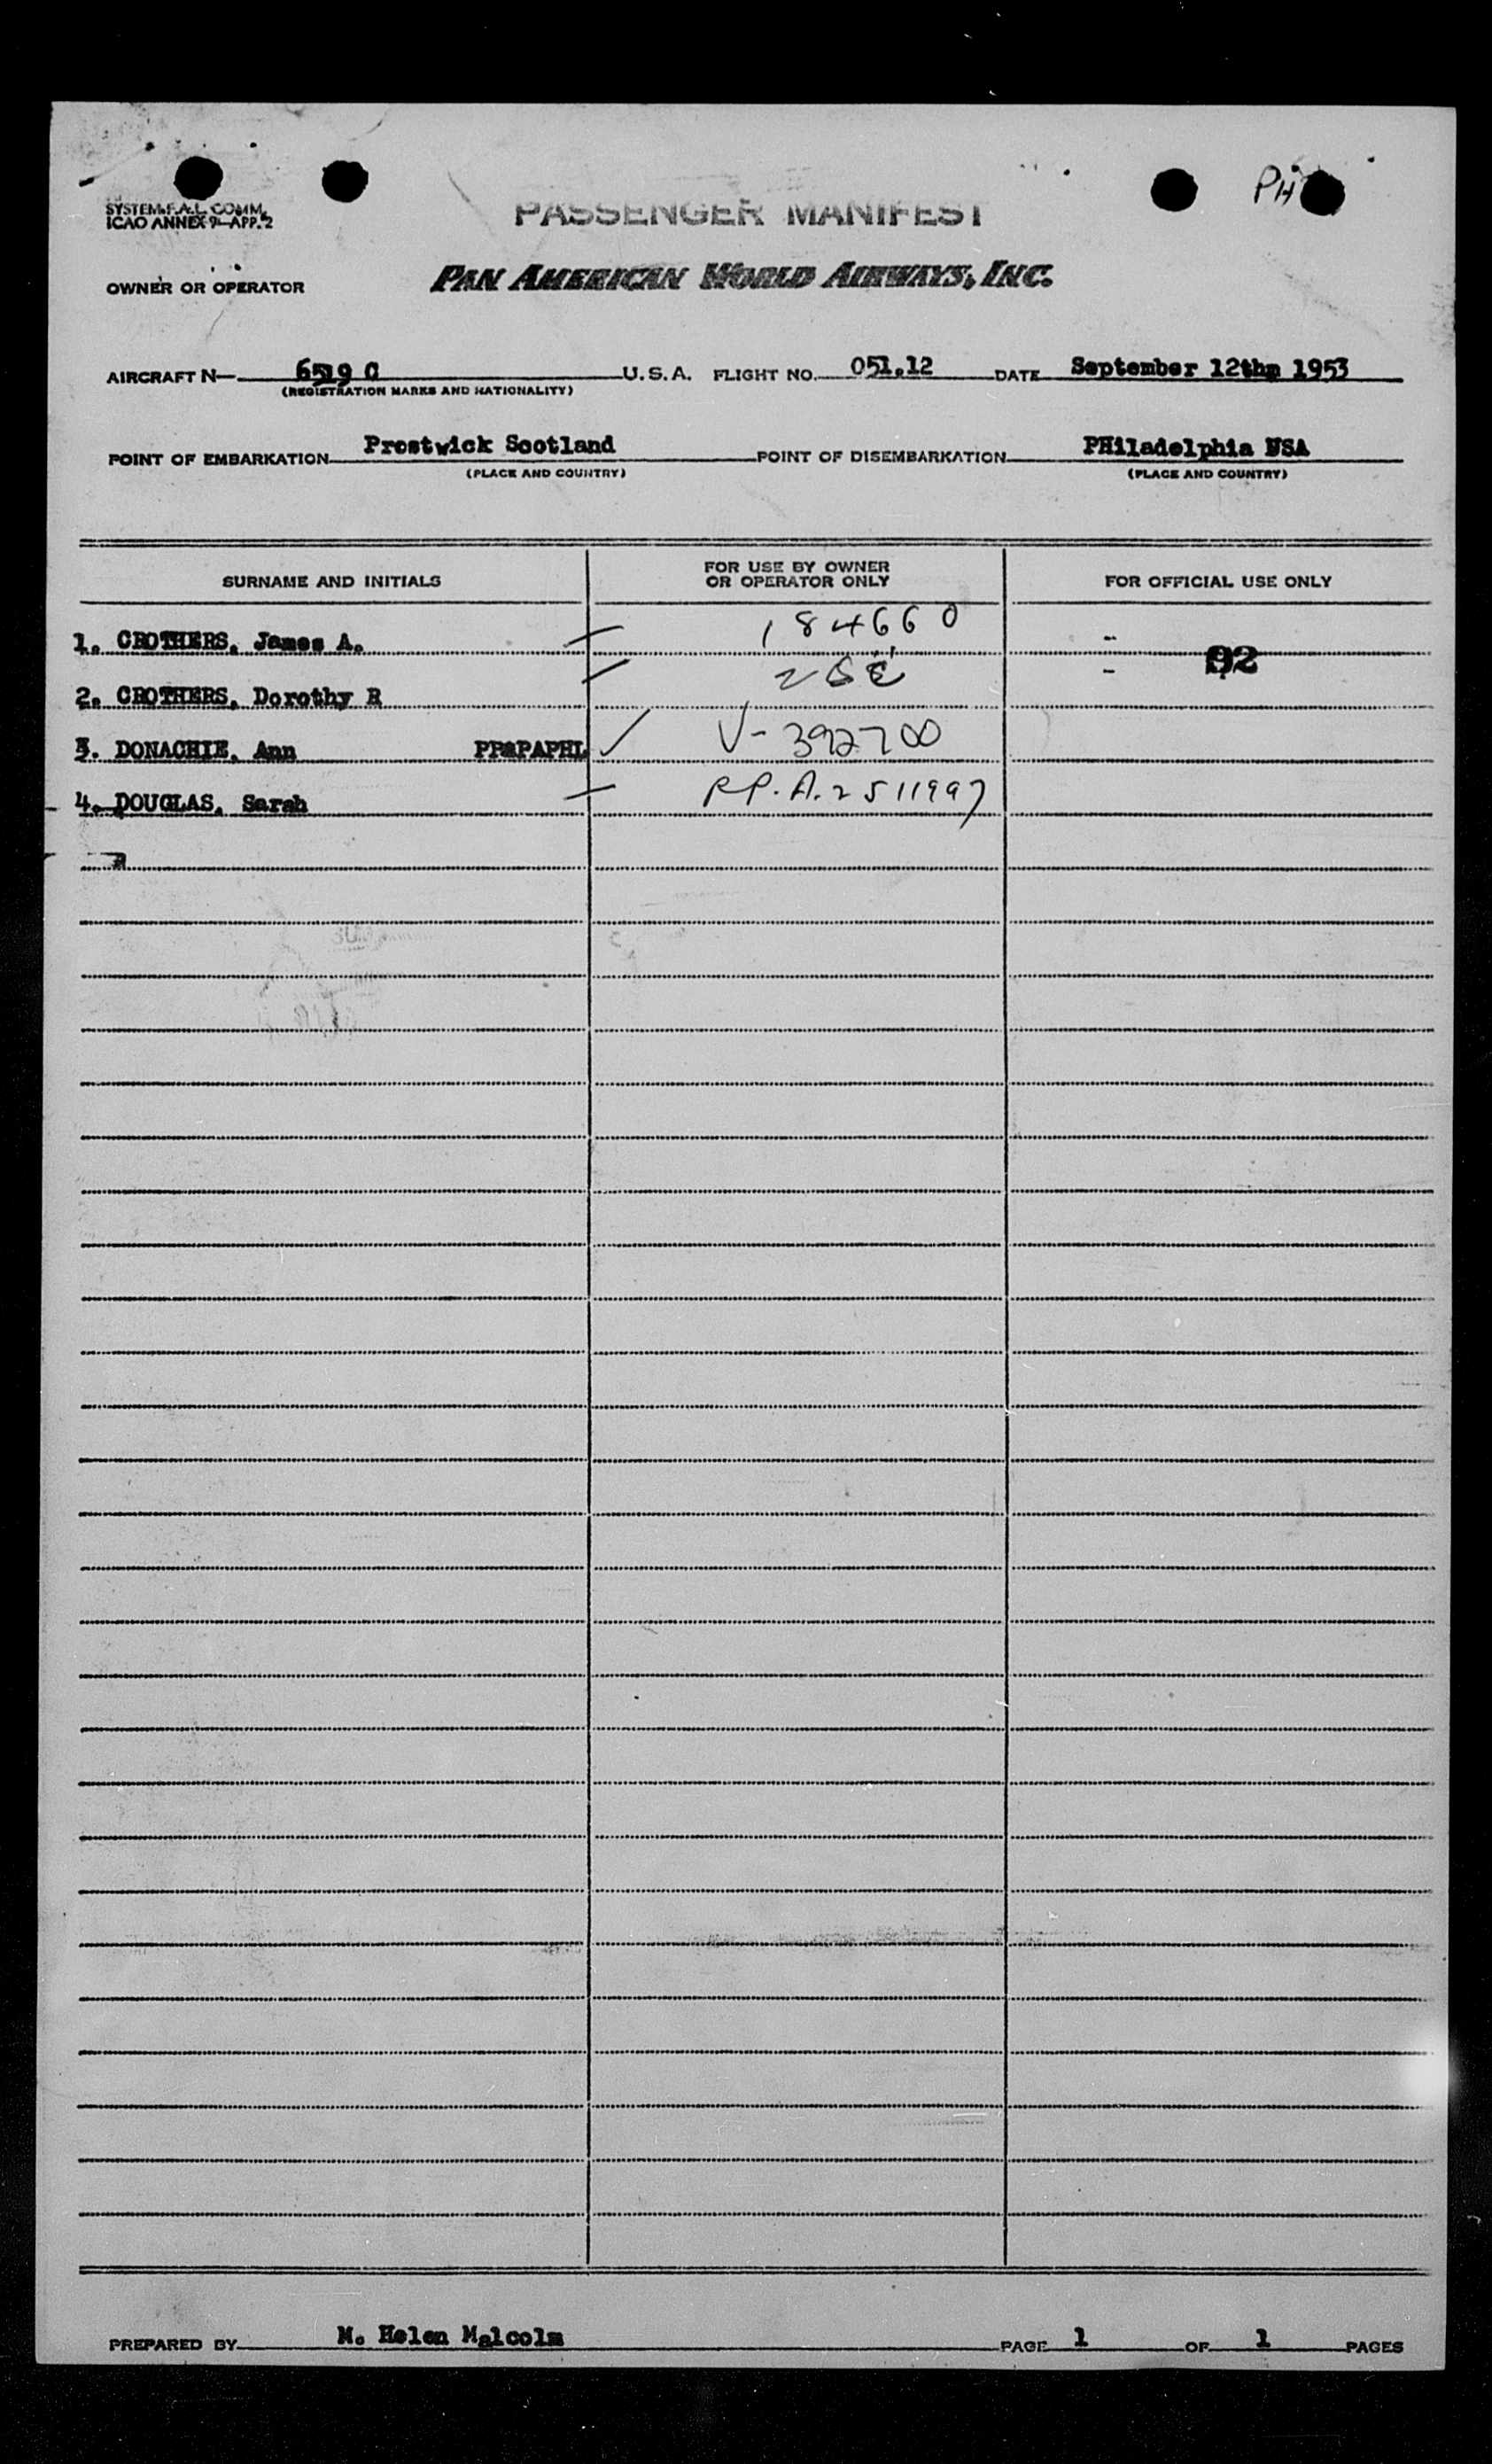 PH
SYSTEM F.A.L. COMM.
ICAO ANNEX 9—APP. 2
PASSENGER MANIFEST
OWNER OR OPERATOR PAN AMERICAN WORLD AIRWAYS, INC.
AIRCRAFT N— 6519 C U.S.A. FLIGHT NO. 051.12 DATE September 12thm 1953
(REGISTRATION MARKS AND NATIONALITY)
POINT OF EMBARKATION Prestwick Scotland POINT OF DISEMBARKATION PHiladelphia USA
(PLACE AND COUNTRY) (PLACE AND COUNTRY)
SURNAME AND INITIALS FOR USE BY OWNER OR OPERATOR ONLY FOR OFFICIAL USE ONLY
1. CROTHERS, James A. — 184660 -
92
2. CROTHERS, Dorothy R — -
3. DONACHIE, Ann PP@PAPHL ✓ V-392700
4. DOUGLAS, Sarah — P.P.A. 2511997
PREPARED BY M. Helen Malcolm PAGE 1 OF 1 PAGES